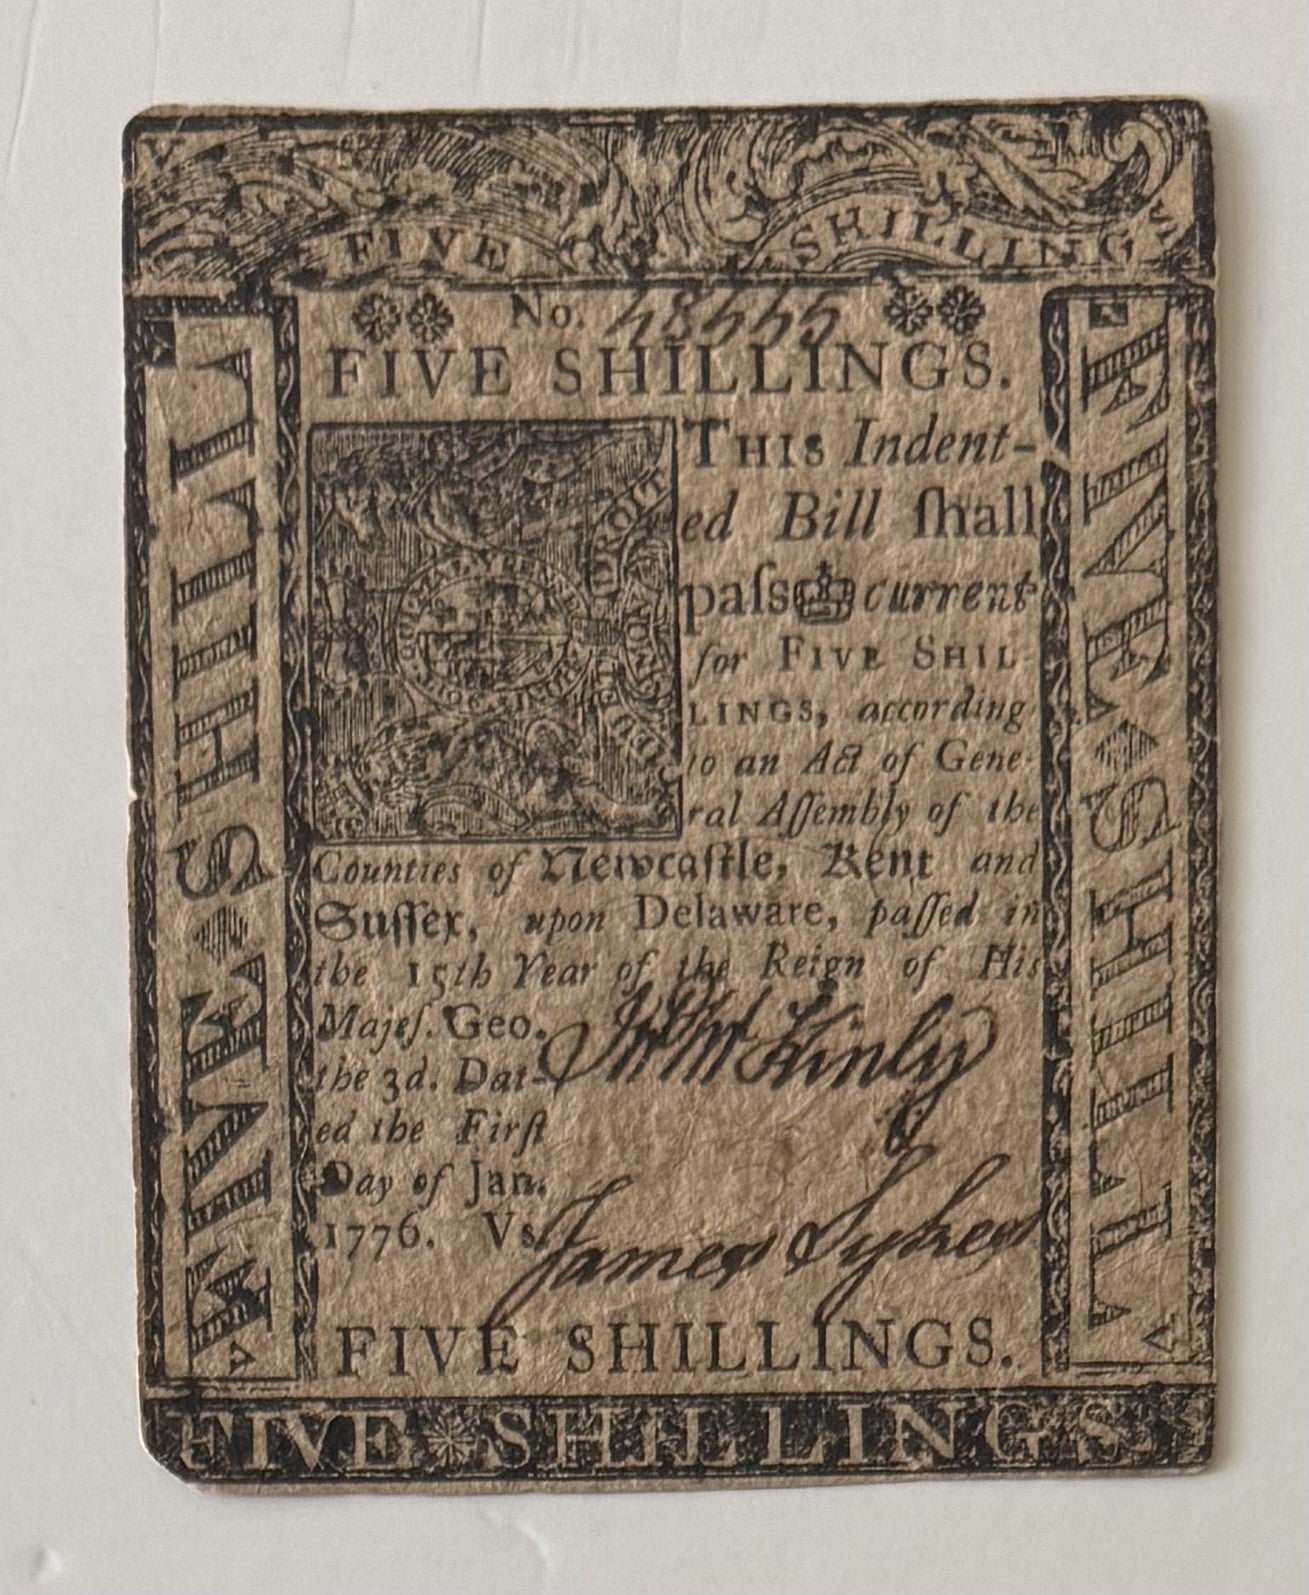 FIVE SHILLINGS
No. 48555
FIVE SHILLINGS.
THIS Indent-
ed Bill ſhall
paſs current
for FIVE SHIL-
LINGS, according
to an Act of Gene-
ral Aſſembly of the
Counties of Newcaſtle, Kent and
Suſſex, upon Delaware, paſſed in
the 15th Year of the Reign of His
Majeſ. Geo.
the 3d. Dat-
ed the Firſt
Day of Jan.
1776. Vs.
Wm McKinly
James Sykes
FIVE SHILLINGS.
FIVE SHILLINGS
FIVE SHILLI
FIVE SHILLI
DIEU ET MON DROIT
HONI SOIT QUI MAL Y PENSE